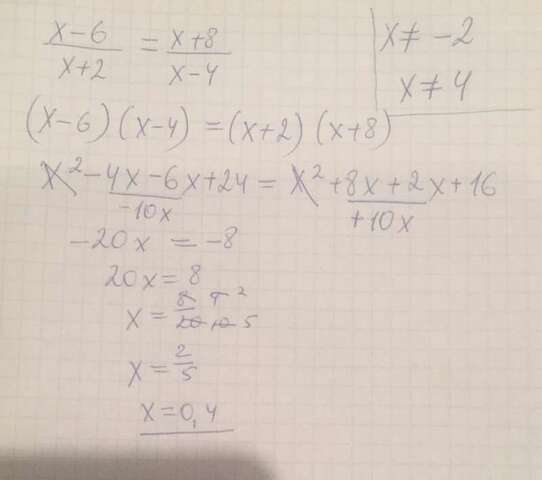 x-6/x+2 = x+8/x-4
x≠-2
x≠4
(x-6)(x-4)=(x+2)(x+8)
x²-4x-6x+24=x²+8x+2x+16
-10x +10x
-20x = -8
20x=8
x=8/20 4/10 2/5
x=2/5
x=0,4